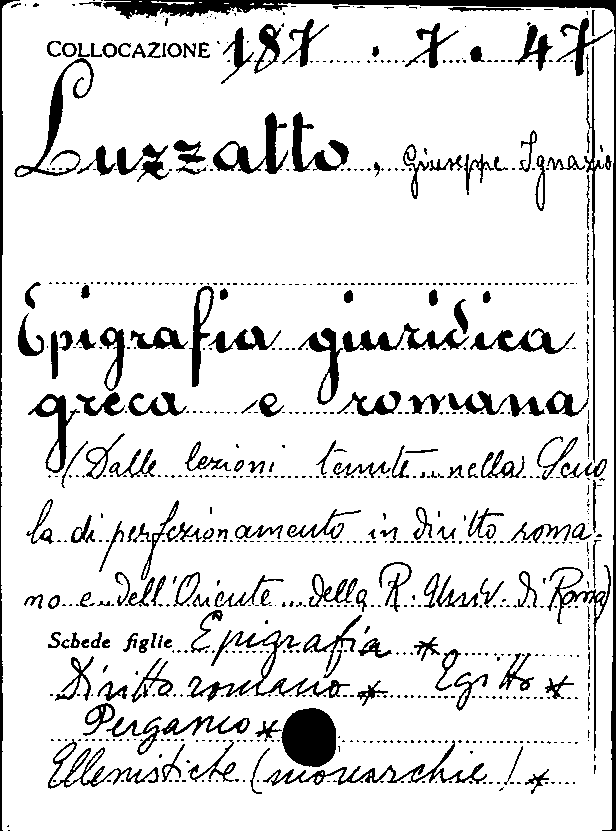 COLLOCAZIONE 187 . 7 . 47
Luzzatto, Giuseppe Ignazio
Epigrafia giuridica
greca e romana
(Dalle lezioni tenute nella Scuo
la di perfezionamento in diritto roma-
no e dell'Oriente della R. Univ. di Roma)
Schede figlie Epigrafia *
Diritto romano * Egitto *
Pergamo *
Ellenistiche (monarchie) *